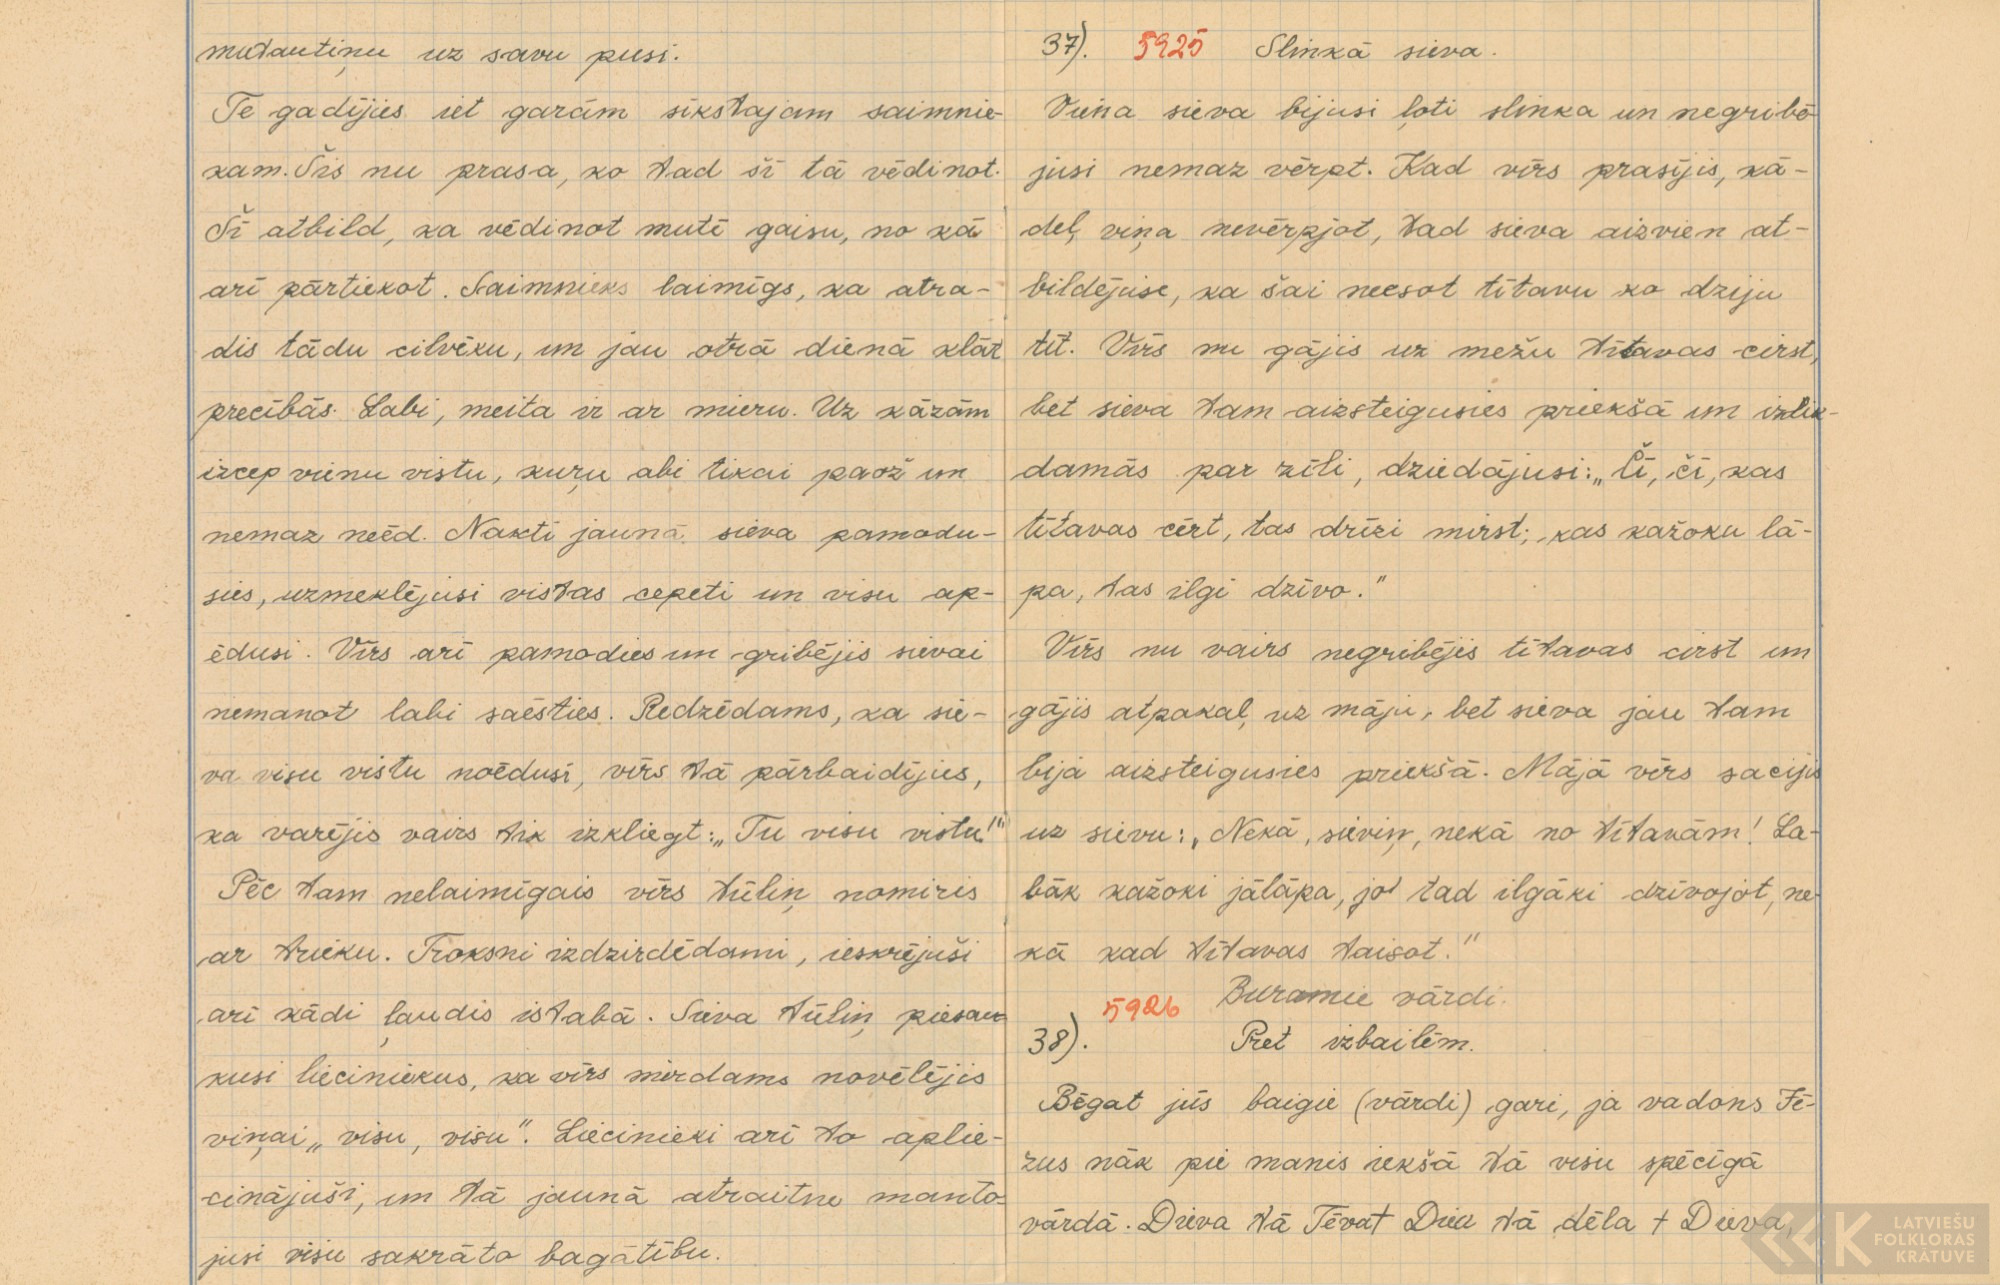 mutautiņu uz savu pusi.
Te gadījies iet garām sīkstajam saimnie-
kam. Šis nu prasa, ko tad šī tā vēdinot.
Šī atbild, ka vēdinot mutē gaisu, no kā
arī pārtiekot. Saimnieks laimīgs, ka atra-
dis tādu cilvēku, un jau otrā dienā klāt
precībās. Labi, meita ir ar mieru. Uz kāzām
izcep vienu vistu, kuŗu abi tikai paož un
nemaz neēd. Naktī jaunā sieva pamodu-
sies, uzmeklējusi vistas cepeti un visu ap-
ēdusi. Vīrs arī pamodies un gribējis sievai
nemanot labi saēsties. Redzēdams, ka sie-
va visu vistu noēdusi, vīrs tā pārbaidījies,
ka varējis vairs tik izkliegt: „Tu visu vistu!"
Pēc tam nelaimīgais vīrs tūliņ nomiris
ar trieku. Troksni izdzirdēdami, ieskrējuši
arī kādi ļaudis istabā. Sieva tūliņ piesau-
kusi lieciniekus, ka vīrs mirdams novēlējis
viņai „visu, visu". Liecinieki arī to aplie-
cinājuši, un tā jaunā atraitne manto-
jusi visu sakrāto bagātību.
37). 5925 Slinkā sieva.
Viena sieva bijusi ļoti slinka un negribē-
jusi nemaz vērpt. Kad vīrs prasījis, kā-
dēļ viņa nevērpjot, tad sieva aizvien at-
bildējuse, ka šai neesot tītavu ko dziju
tīt. Vīrs nu gājis uz mežu tītavas cirst,
bet sieva tam aizsteigusies priekšā un izlik-
damās par zīli, dziedājusi: „Čī, čī, kas
tītavas cērt, tas drīzi mirst; kas kažoku lā-
pa, tas ilgi dzīvo."
Vīrs nu vairs negribējis tītavas cirst un
gājis atpakaļ uz māju, bet sieva jau tam
bija aizsteigusies priekšā. Mājā vīrs sacījis
uz sievu: „Nekā, sieviņ, nekā no tītavām! La-
bāk kažoki jālāpa, jo tad ilgāki dzīvojot, ne-
kā kad tītavas taisot."
5926 Buramie vārdi.
38). Pret izbailēm.
Bēgat jūs baigie (vārdi) gari, ja vadons Jē-
zus nāk pie manis iekšā tā visu spēcīgā
vārdā. Dieva tā Tēva † Diev tā dēla † Dieva,
LATVIEŠU
FOLKLORAS
KRĀTUVE